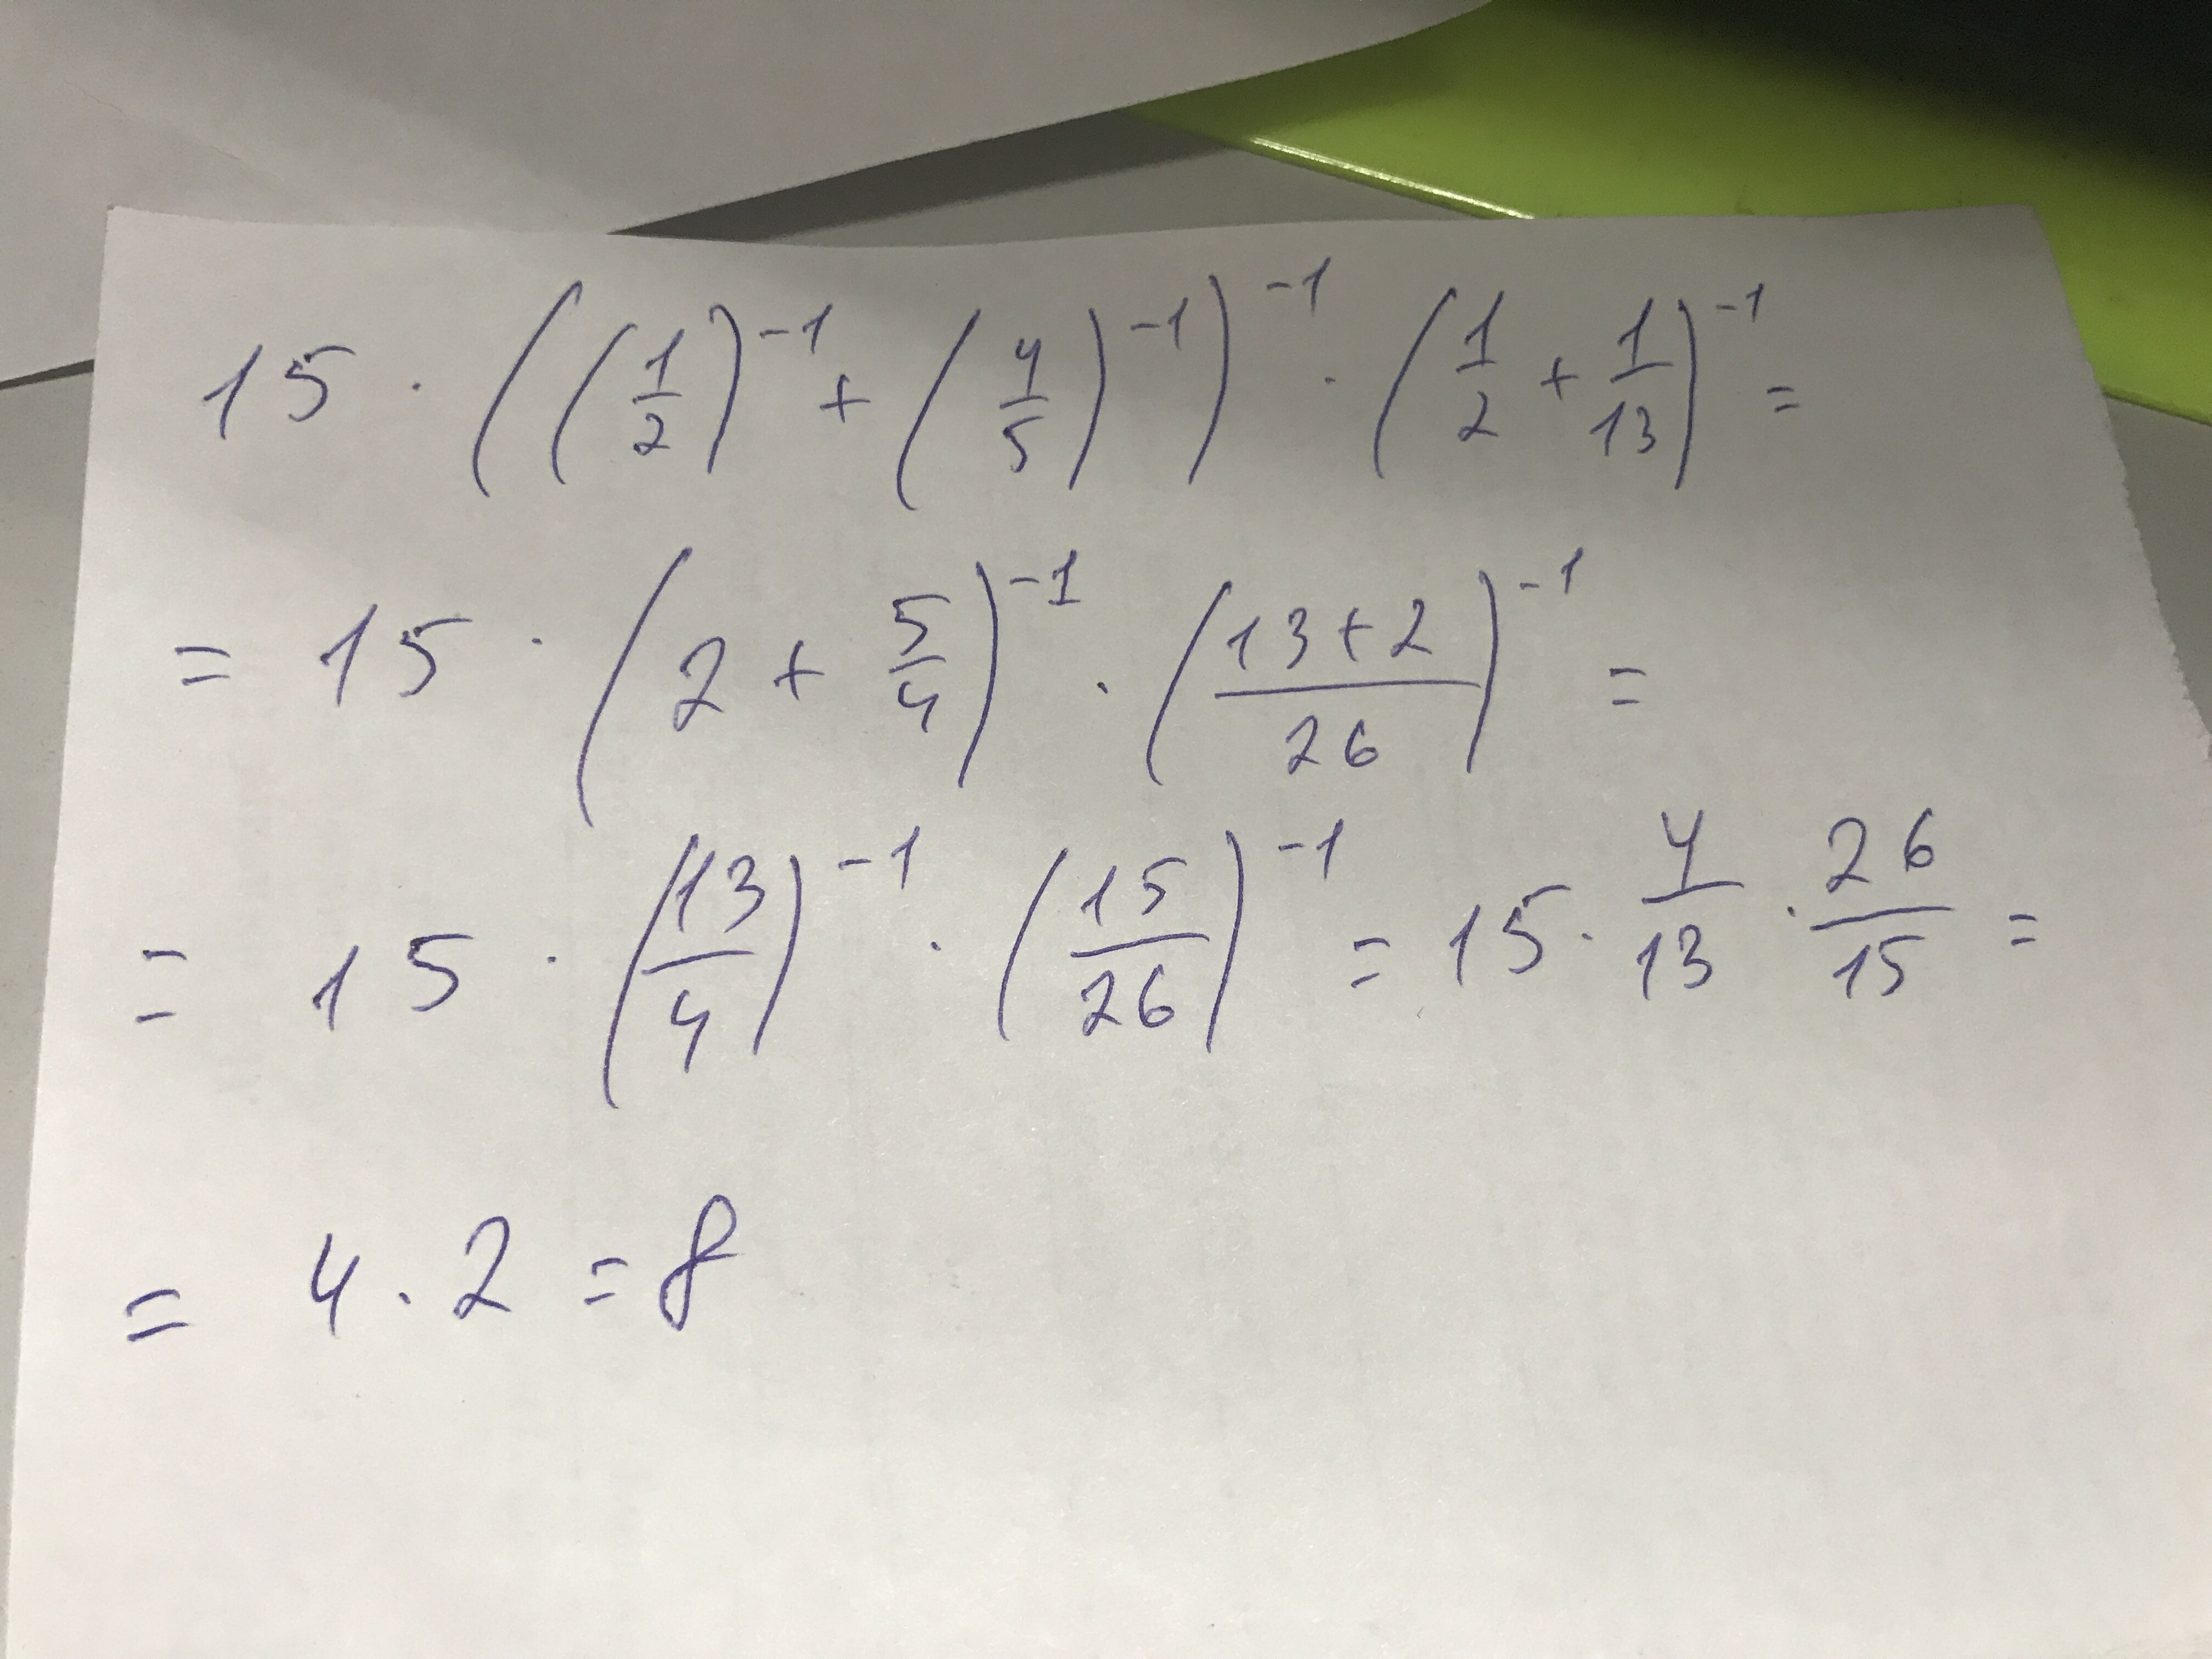 15 · ((1/2)^-1 + (4/5)^-1)^-1 · (1/2 + 1/13)^-1 =
= 15 · (2 + 5/4)^-1 · ((13+2)/26)^-1 =
= 15 · (13/4)^-1 · (15/26)^-1 = 15 · 4/13 · 26/15 =
= 4 · 2 = 8